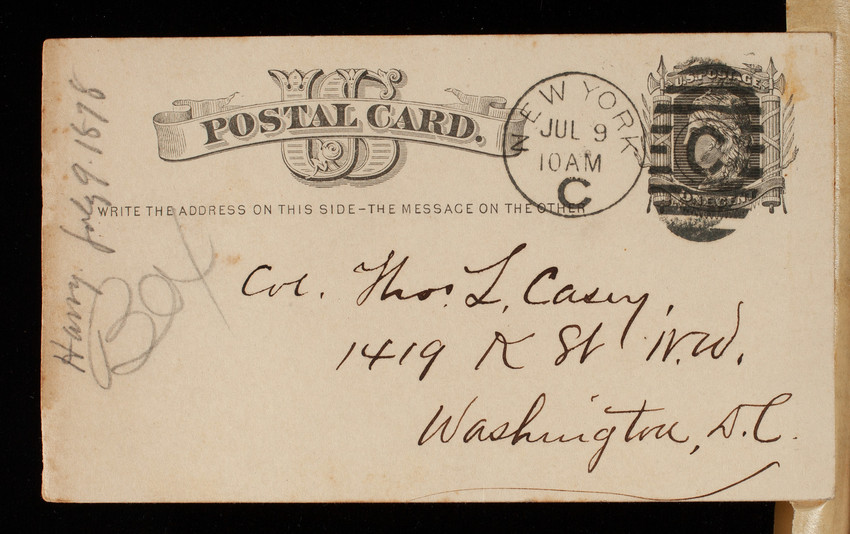 US
POSTAL CARD.
WRITE THE ADDRESS ON THIS SIDE–THE MESSAGE ON THE OTHER
NEW YORK
JUL 9
10AM
C
U.S. POSTAGE
C
ONE CENT
Col. Thos. L. Casey,
1419 K St N.W.
Washington, D.C.
Harry July 9. 1878